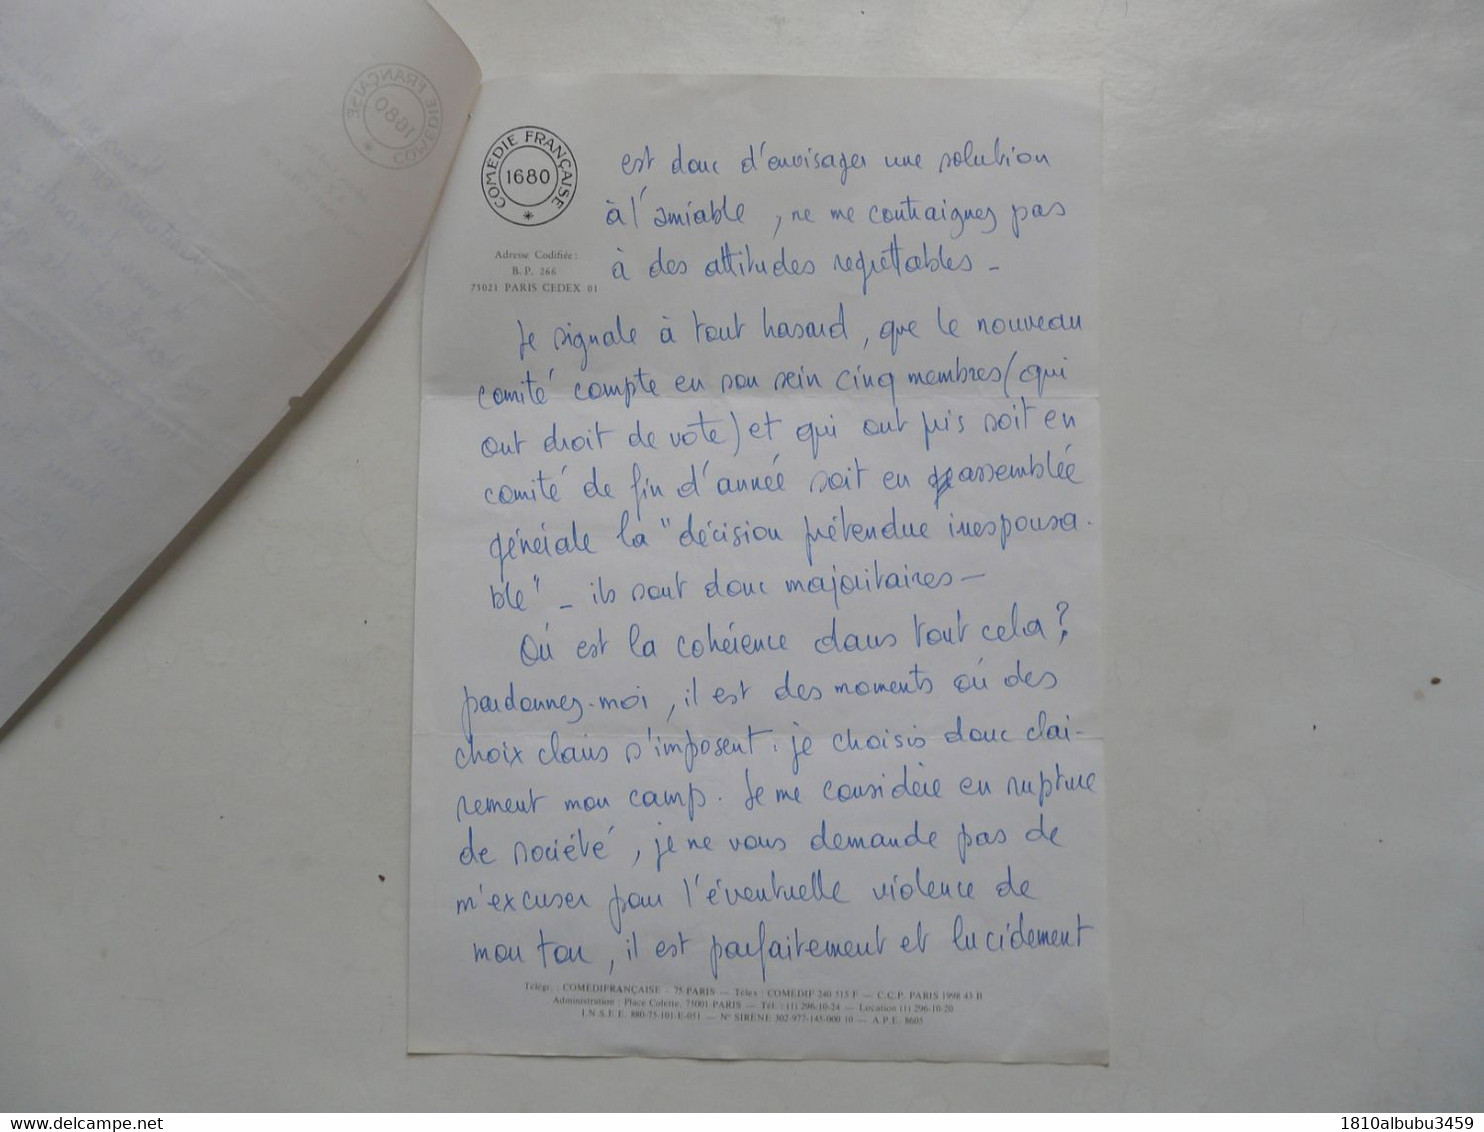 COMEDIE FRANÇAISE
1680
Adresse Codifiée :
B. P. 266
75021 PARIS CEDEX 01
est donc d'envisager une solution
à l'amiable, ne me contraignez pas
à des attitudes regrettables -
Je signale à tout hasard, que le nouveau
comité compte en son sein cinq membres (qui
ont droit de vote) et qui ont pris soit en
comité de fin d'année soit en assemblée
générale la "décision prétendue irresponsa-
ble" - ils sont donc majoritaires -
Où est la cohérence dans tout cela ?
pardonnez-moi, il est des moments où des
choix clairs s'imposent. je choisis donc clai-
rement mon camp. Je me considère en rupture
de société, je ne vous demande pas de
m'excuser pour l'éventuelle violence de
mon ton, il est parfaitement et lucidement
Télégr. : COMEDIFRANÇAISE - 75 PARIS — Télex : COMEDIF 240 515 F — C.C.P. PARIS 1998 43 B
Administration : Place Colette, 75001 PARIS — Tél. : (1) 296-10-24 — Location (1) 296-10-20
I.N.S.E.E. 880-75-101-E-051 — N° SIRÈNE 302-977-145-000 10 — A.P.E. 8605
delcampe.net
1810albubu3459